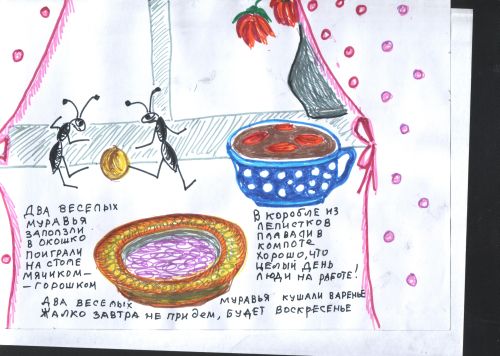 ДВА ВЕСЕЛЫХ
МУРАВЬЯ
ЗАПОЛЗЛИ
В ОКОШКО
ПОИГРАЛИ
НА СТОЛЕ
МЯЧИКОМ-
-ГОРОШКОМ
В КОРОБЛЕ ИЗ
ЛЕПИСТКОВ
ПЛАВАЛИ В
КОМПОТЕ
ХОРОШО, ЧТО
ЦЕЛЫЙ ДЕНЬ
ЛЮДИ НА РАБОТЕ!
ДВА ВЕСЕЛЫХ МУРАВЬЯ КУШАЛИ ВАРЕНЬЕ
ЖАЛКО ЗАВТРА НЕ ПРИДЕМ, БУДЕТ ВОСКРЕСЕНЬЕ